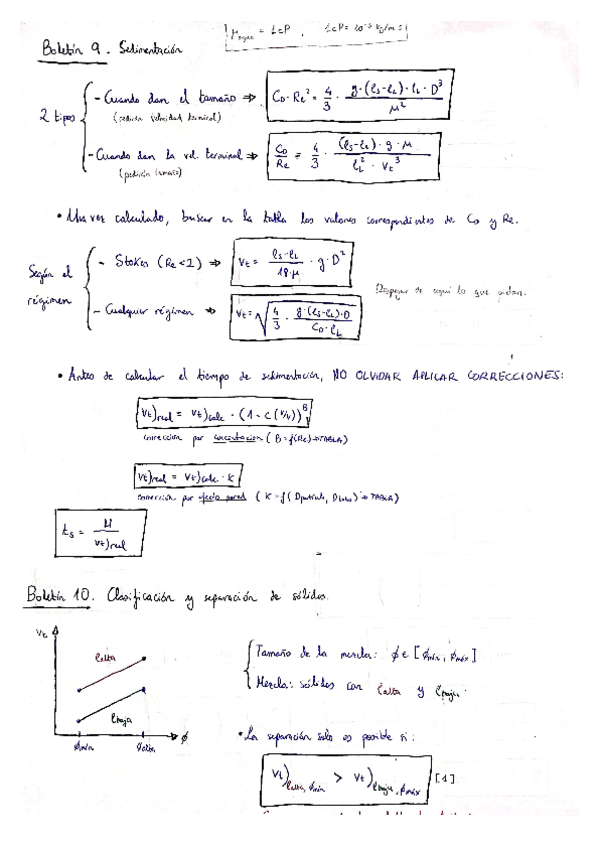 μagua = 1cP , 1cP = 10⁻³ kg/m·s
Boletín 9. Sedimentación
2 tipos
- Cuando dan el tamaño ⇒ C_D·Re² = 4/3 · g·(ρs-ρL)·ρL·D³/μ²
(pedirán velocidad terminal)
- Cuando dan la vel. terminal ⇒ C_D/Re = 4/3 · (ρs-ρL)·g·μ/ρL²·Vt³
(pedirán tamaño)
• Una vez calculado, buscar en la tabla los valores correspondientes de C_D y Re.
Según el régimen
- Stokes (Re<1) ⇒ Vt = ρs-ρL/18·μ · g·D²
Despejar de aquí lo que pidan.
- Cualquier régimen ⇒ Vt = √4/3 · g·(ρs-ρL)·D/C_D·ρL
• Antes de calcular el tiempo de sedimentación, NO OLVIDAR APLICAR CORRECCIONES:
Vt)real = Vt)calc · (1-C(V/V))^B
corrección por concentración (B=f(Re)→TABLA)
Vt)real = Vt)calc · K
corrección por efecto pared (K=f(Dpartícula, Dtubo)→TABLA)
ts = H/Vt)real
Boletín 10. Clasificación y separación de sólidos.
Vt
ρalta
ρbaja
φmín
φ
Tamaño de la mezcla: φ∈[φmín, φmáx]
Mezcla: sólidos con ρalta y ρbaja.
• La separación solo es posible si:
Vt)ρalta, φmín > Vt)ρbaja, φmáx [1]